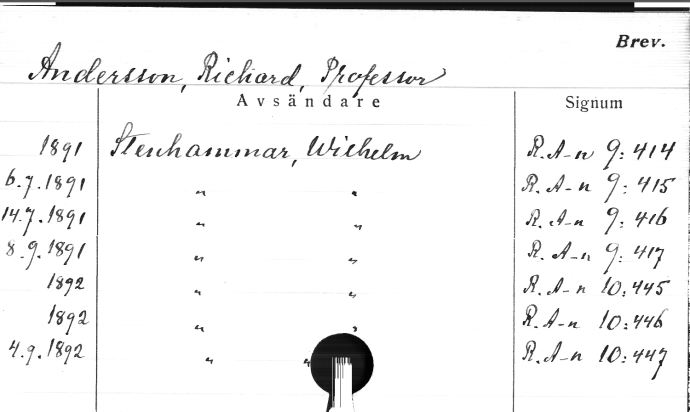 Brev.
Andersson, Richard, Professor
Avsändare Signum
1891 Stenhammar, Wilhelm R. A-n 9:414
6.7.1891 " " R. A-n 9:415
14.7.1891 " " R. A-n 9:416
8.9.1891 " " R. A-n 9:417
1892 " " R. A-n 10:445
1892 " " R. A-n 10:446
4.9.1892 " " R. A-n 10:447